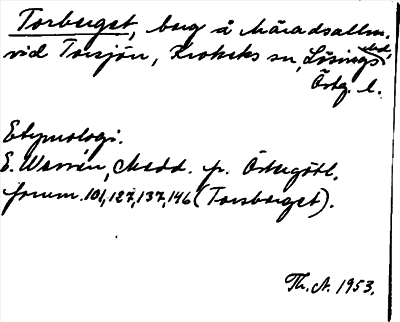 Torberget, berg å häradsallm.
vid Torsjön, Krokeks sn, Lösings hd,
Östg. l.
Etymologi.
E. Warrén, Medd. fr. Östergötl.
fornm. 101, 127, 137, 146 (Torsberget).
Th. A. 1953.